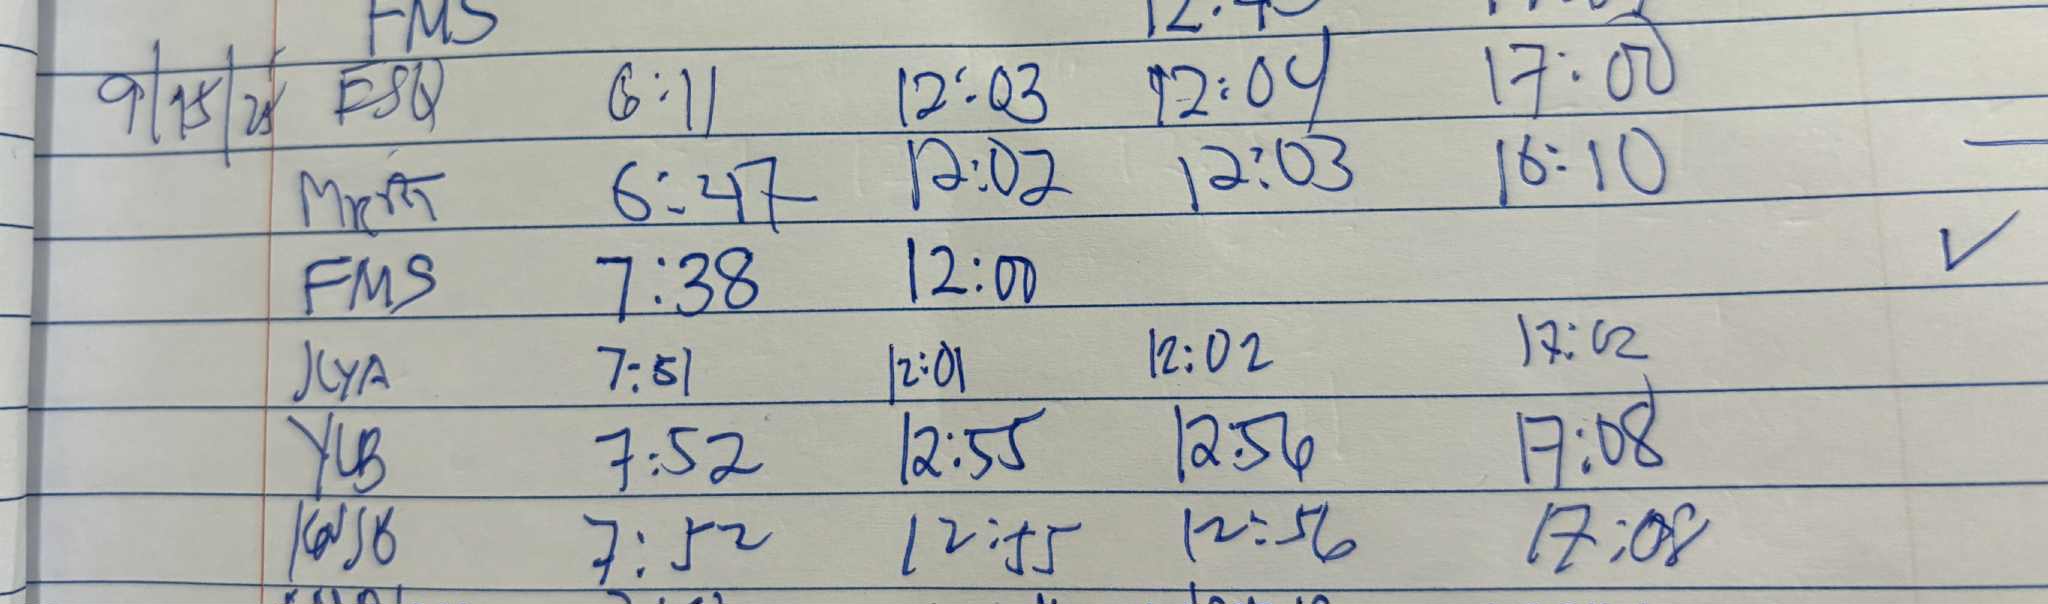 FMS
9/15/25 ESQ 6:11 12:03 12:04 17:00
6:47 12:02 12:03 16:10 —
FMS 7:38 12:00 ✓
KYA 7:51 12:01 12:02 17:02
YLB 7:52 12:55 12:56 17:08
7:52 12:55 12:56 17:08